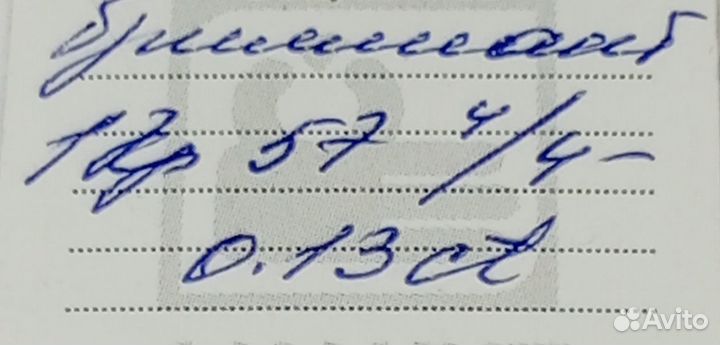 бриллиант
1 Кр 57 4/4 -
0.13 ct
Avito